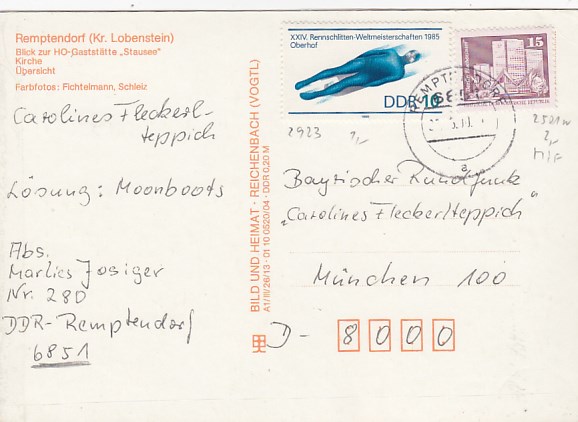 Remptendorf (Kr. Lobenstein)
Blick zur HO-Gaststätte „Stausee"
Kirche
Übersicht
Farbfotos: Fichtelmann, Schleiz
Carolines Fleckerl-
teppich
Lösung: Moonboots
Abs.
Marlies Josiger
Nr. 280
DDR-Remptendorf
6851
BILD UND HEIMAT · REICHENBACH (VOGTL)
A1/III/26/13 · 01 10 0520/04 · DDR 0,20 M
XXIV. Rennschlitten-Weltmeisterschaften 1985
Oberhof
DDR 10
15
2923
2,-
2501w
2,-
MiF
Bayrischer Rundfunk
„Carolines Fleckerlteppich"
München 100
D- 8000